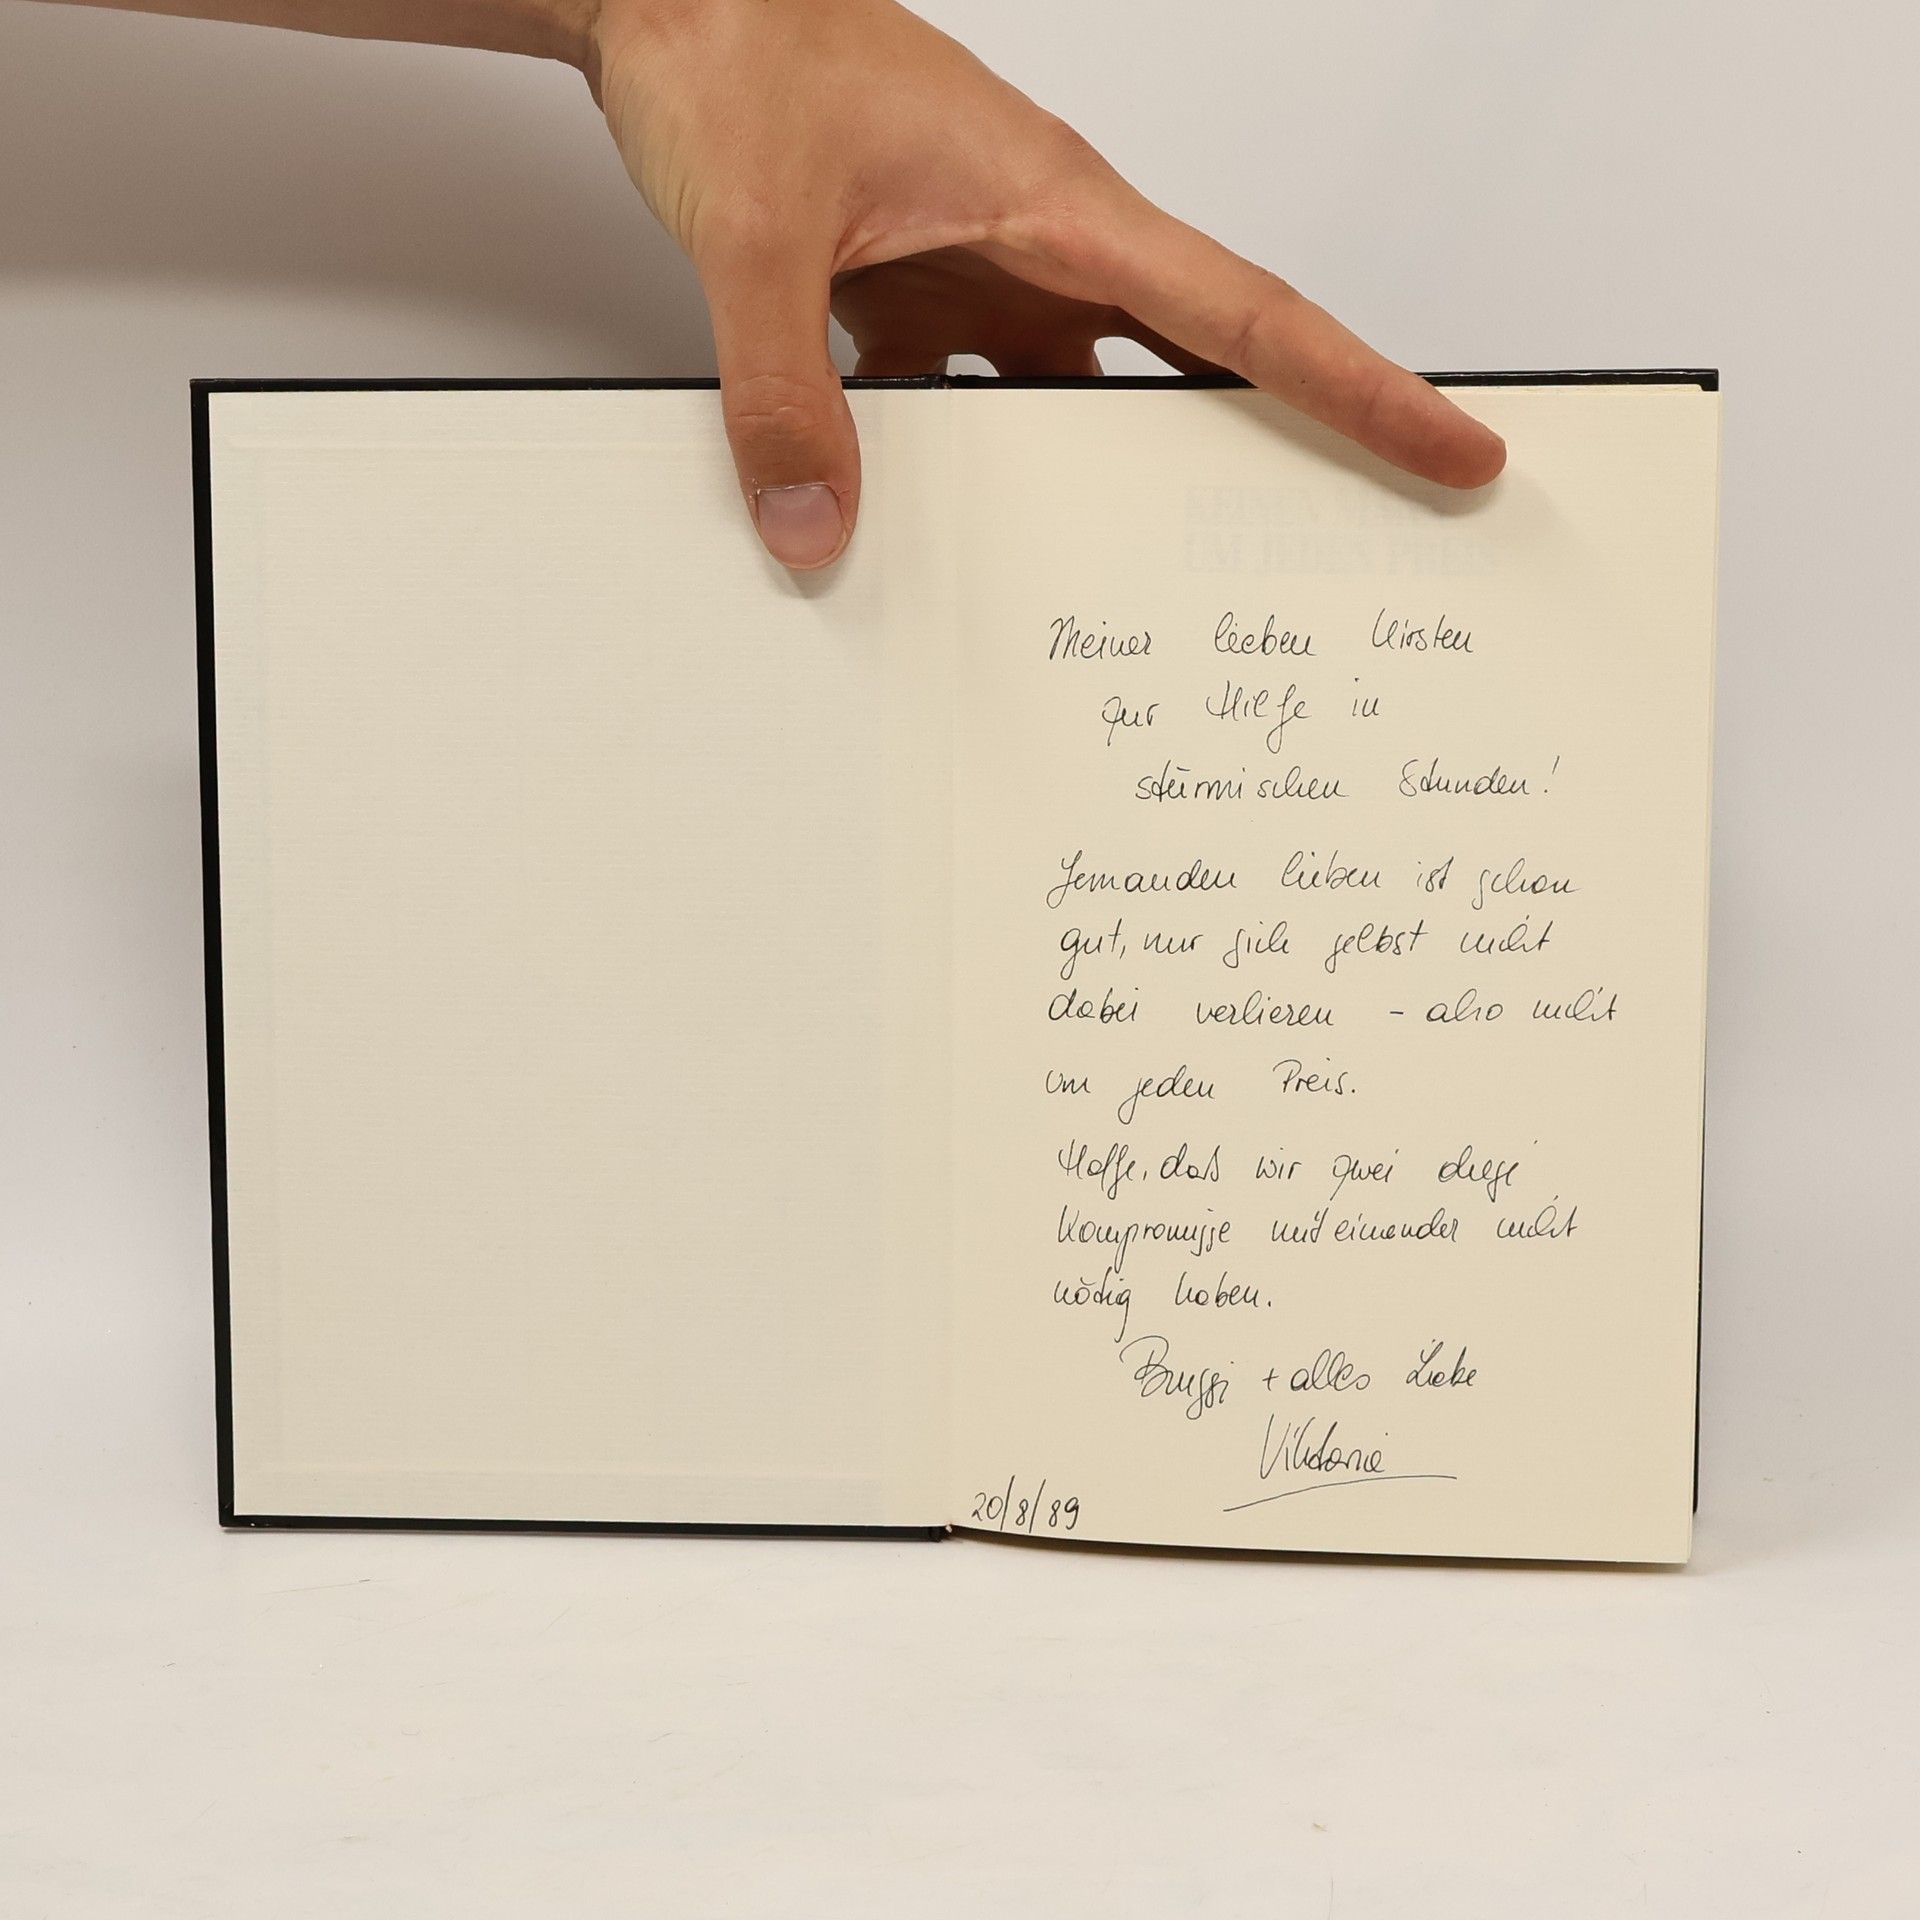 KEINEN MANN
UM JEDEN PREIS
Meiner lieben Kirsten
zur Hilfe in
stürmischen Stunden!
Jemanden lieben ist schon
gut, nur sich selbst nicht
dabei verlieren - also nicht
um jeden Preis.
Hoffe, daß wir zwei diese
Kompromisse miteinander nicht
nötig haben.
Bussi + alles Liebe
Viktoria
20/8/89